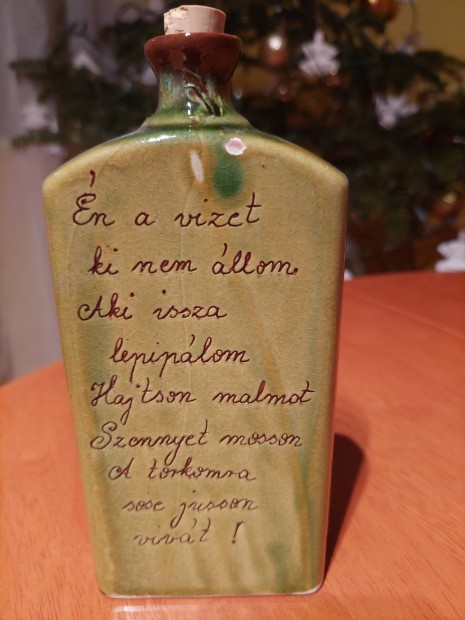 Én a vizet
ki nem állom.
Aki issza
lepipálom
Hajtson malmot
Szennyet mosson
A torkomra
sose jusson
vivát !